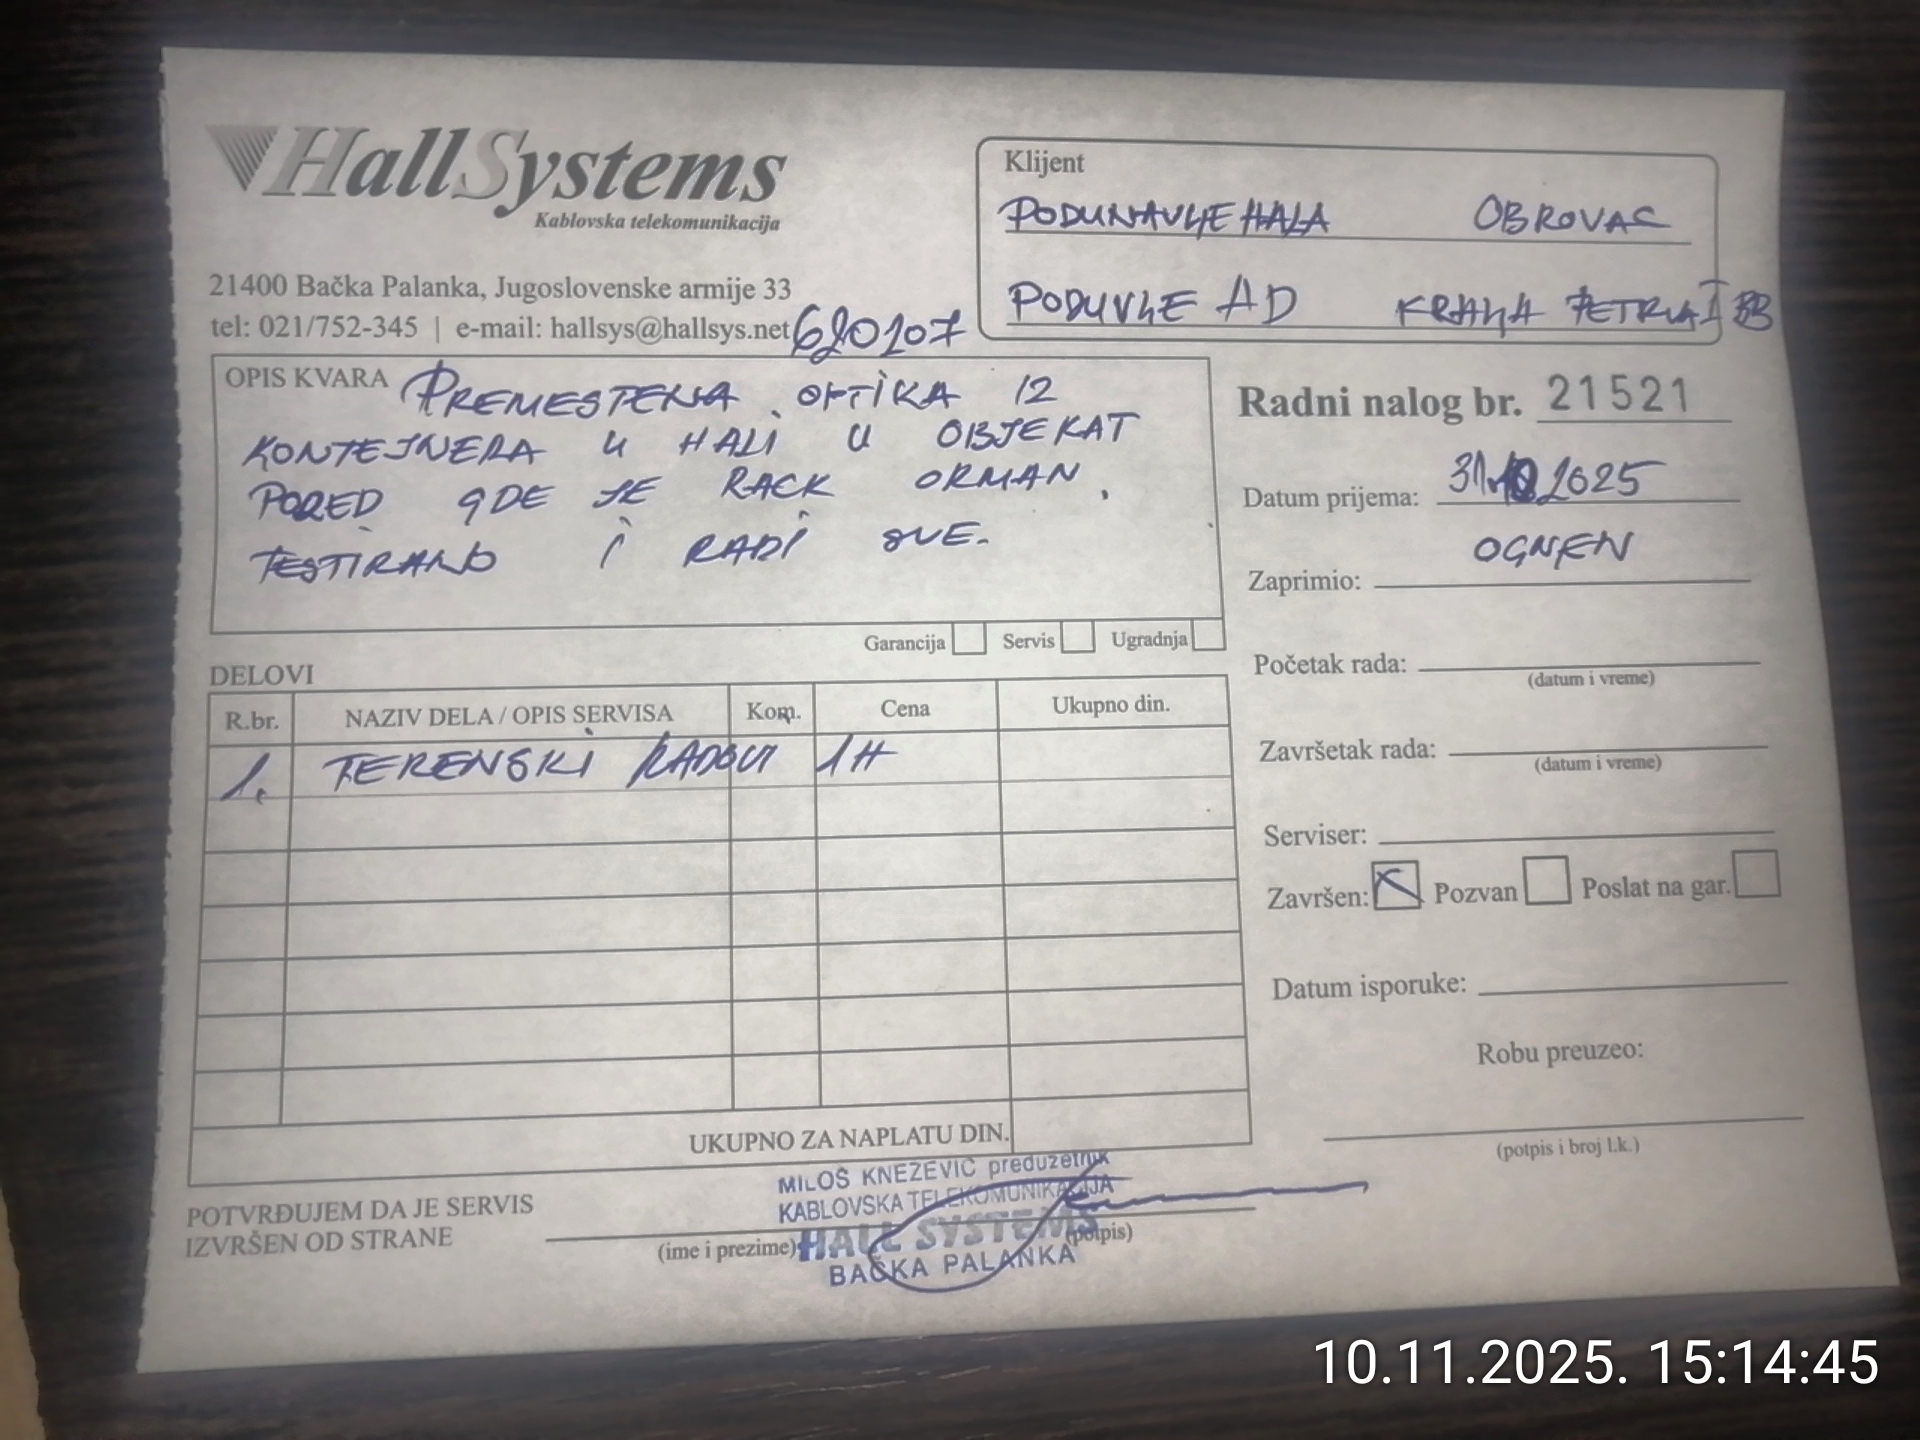 HallSystems
Kablovska telekomunikacija
21400 Bačka Palanka, Jugoslovenske armije 33
tel: 021/752-345 | e-mail: hallsys@hallsys.net
Klijent
PODUNAVLJE HALA OBROVAC
PODUVLJE AD KRALJA PETRA I BB
OPIS KVARA PREMESTENA OPTIKA 12
KONTEJNERA U HALI U OBJEKAT
PORED GDE JE RACK ORMAN,
TESTIRANO I RADI SVE.
Garancija Servis Ugradnja
Radni nalog br. 21521
Datum prijema: 31.10.2025
Zaprimio: OGNJEN
Početak rada:
(datum i vreme)
Završetak rada:
(datum i vreme)
Serviser:
Završen: Pozvan Poslat na gar.
Datum isporuke:
Robu preuzeo:
(potpis i broj l.k.)
DELOVI
R.br. NAZIV DELA / OPIS SERVISA Kom. Cena Ukupno din.
1. TERENSKI RADOVI 1H
UKUPNO ZA NAPLATU DIN.
POTVRĐUJEM DA JE SERVIS
IZVRŠEN OD STRANE
(ime i prezime) (potpis)
MILOŠ KNEŽEVIĆ preduzetnik
KABLOVSKA TELEKOMUNIKACIJA
HALL SYSTEMS
BAČKA PALANKA
10.11.2025. 15:14:45